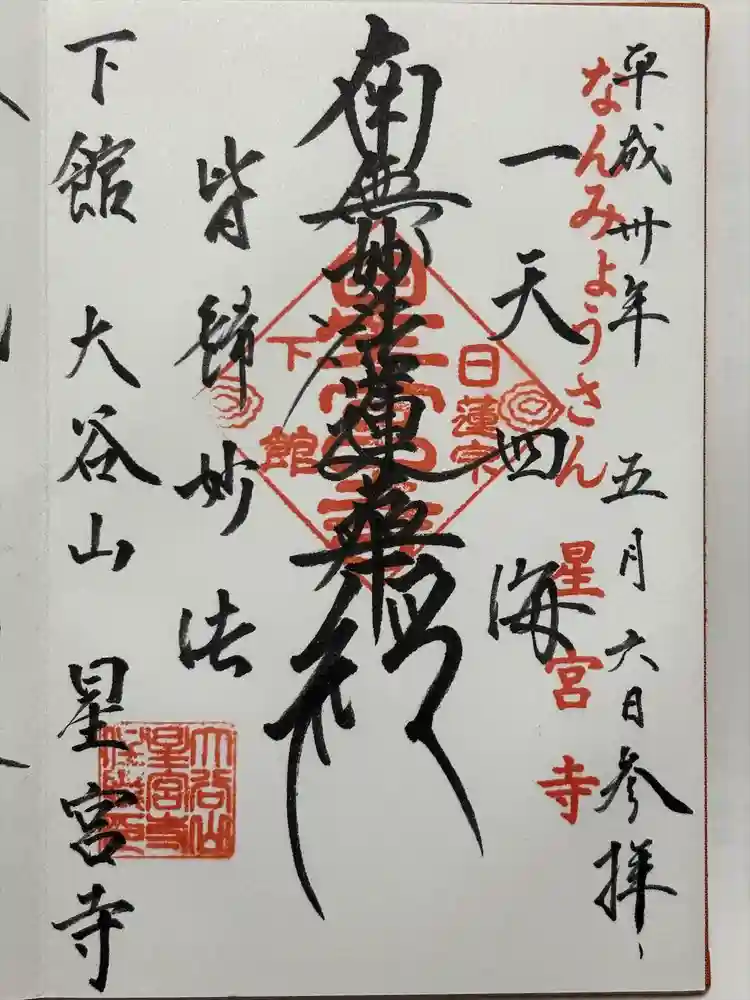 平成卅年 五月六日参拝
なんみょうさん 星宮寺
一天四海
南無妙法蓮華経
日蓮宗
星宮寺
下館
皆歸妙法
下館 大谷山 星宮寺
大谷山
星宮寺